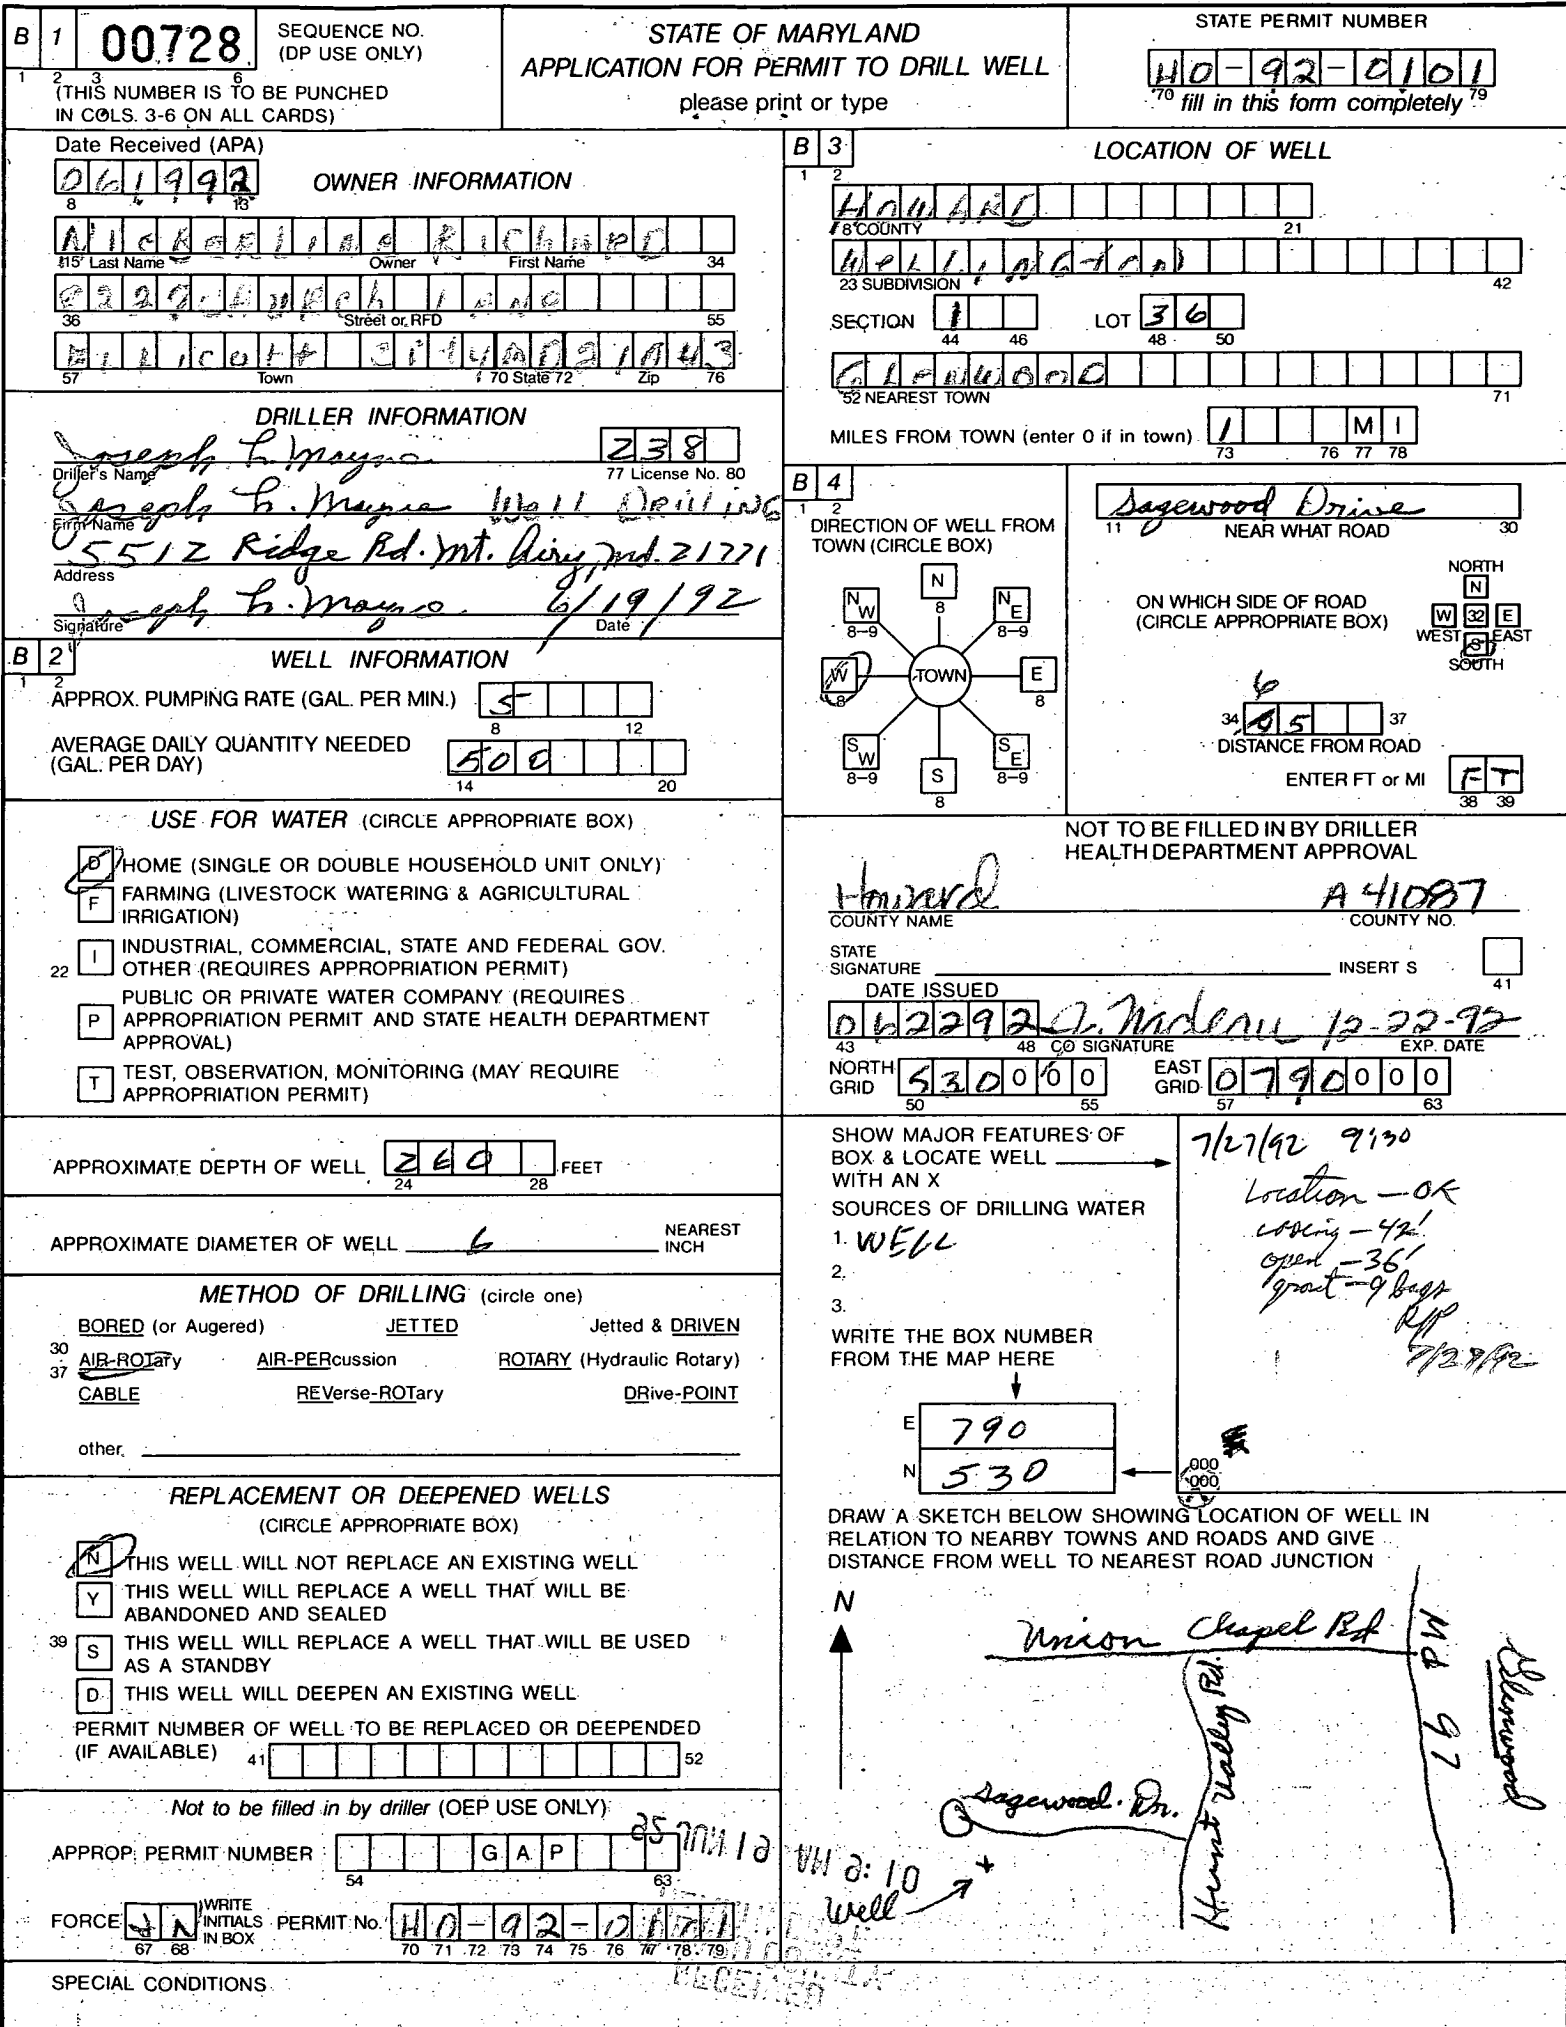 B 1 00728 SEQUENCE NO. (DP USE ONLY)
1 2 3 6
(THIS NUMBER IS TO BE PUNCHED
IN COLS. 3-6 ON ALL CARDS)
STATE OF MARYLAND
APPLICATION FOR PERMIT TO DRILL WELL
please print or type
STATE PERMIT NUMBER
HO-92-0101
70 fill in this form completely 79
Date Received (APA)
061992
8 13
OWNER INFORMATION
Nickerline Richard
15 Last Name Owner First Name 34
8229 Church Lane
36 Street or RFD 55
Ellicott City MD 21043
57 Town 70 State 72 Zip 76
DRILLER INFORMATION
Joseph L. Mayne 238
Driller's Name 77 License No. 80
Joseph L. Mayne Well Drilling
Firm Name
5512 Ridge Rd. Mt. Airy, Md. 21771
Address
Joseph L. Mayne 6/19/92
Signature Date
B 2
1 2
WELL INFORMATION
APPROX. PUMPING RATE (GAL. PER MIN.) 5
8 12
AVERAGE DAILY QUANTITY NEEDED
(GAL. PER DAY) 500
14 20
USE FOR WATER (CIRCLE APPROPRIATE BOX)
D HOME (SINGLE OR DOUBLE HOUSEHOLD UNIT ONLY)
F FARMING (LIVESTOCK WATERING & AGRICULTURAL
IRRIGATION)
22 I INDUSTRIAL, COMMERCIAL, STATE AND FEDERAL GOV.
OTHER (REQUIRES APPROPRIATION PERMIT)
P PUBLIC OR PRIVATE WATER COMPANY (REQUIRES
APPROPRIATION PERMIT AND STATE HEALTH DEPARTMENT
APPROVAL)
T TEST, OBSERVATION, MONITORING (MAY REQUIRE
APPROPRIATION PERMIT)
APPROXIMATE DEPTH OF WELL 260 FEET
24 28
APPROXIMATE DIAMETER OF WELL 6 NEAREST INCH
METHOD OF DRILLING (circle one)
BORED (or Augered) JETTED Jetted & DRIVEN
30 AIR-ROTary AIR-PERcussion ROTARY (Hydraulic Rotary)
37 CABLE REVerse-ROTary DRive-POINT
other
REPLACEMENT OR DEEPENED WELLS
(CIRCLE APPROPRIATE BOX)
N THIS WELL WILL NOT REPLACE AN EXISTING WELL
Y THIS WELL WILL REPLACE A WELL THAT WILL BE
ABANDONED AND SEALED
39 S THIS WELL WILL REPLACE A WELL THAT WILL BE USED
AS A STANDBY
D THIS WELL WILL DEEPEN AN EXISTING WELL
PERMIT NUMBER OF WELL TO BE REPLACED OR DEEPENDED
(IF AVAILABLE) 41 52
Not to be filled in by driller (OEP USE ONLY)
APPROP. PERMIT NUMBER GAP
54 63
FORCE WRITE INITIALS IN BOX PERMIT No. HO-92-0101
67 68 70 71 72 73 74 75 76 77 78 79
SPECIAL CONDITIONS
B 3
1 2
LOCATION OF WELL
Howard
8 COUNTY 21
Wellington
23 SUBDIVISION 42
SECTION 1 LOT 36
44 46 48 50
Glenwood
52 NEAREST TOWN 71
MILES FROM TOWN (enter 0 if in town) 1 MI
73 76 77 78
B 4
1 2
DIRECTION OF WELL FROM
TOWN (CIRCLE BOX)
N
8
NW NE
8-9 8-9
W TOWN E
8 8
SW SE
8-9 8-9
S
8
Sagewood Drive
11 NEAR WHAT ROAD 30
ON WHICH SIDE OF ROAD
(CIRCLE APPROPRIATE BOX)
NORTH
N
W 32 E
WEST EAST
S
SOUTH
6
34 5 37
DISTANCE FROM ROAD
ENTER FT or MI FT
38 39
NOT TO BE FILLED IN BY DRILLER
HEALTH DEPARTMENT APPROVAL
Howard A 41087
COUNTY NAME COUNTY NO.
STATE
SIGNATURE INSERT S
41
DATE ISSUED
062292 12-22-92
43 48 CO SIGNATURE EXP. DATE
NORTH GRID 530000 EAST GRID 0790000
50 55 57 63
SHOW MAJOR FEATURES OF
BOX & LOCATE WELL
WITH AN X
SOURCES OF DRILLING WATER
1. WELL
2.
3.
WRITE THE BOX NUMBER
FROM THE MAP HERE
E 790
N 530
000
000
7/27/92 9:30
Location - OK
casing - 42'
open - 36'
grout - 9 bags
7/27/92
DRAW A SKETCH BELOW SHOWING LOCATION OF WELL IN
RELATION TO NEARBY TOWNS AND ROADS AND GIVE
DISTANCE FROM WELL TO NEAREST ROAD JUNCTION
N
Union Chapel Rd
Md 97
Glenwood
Hunt Valley Rd.
Sagewood Dr.
Well
RECEIVED